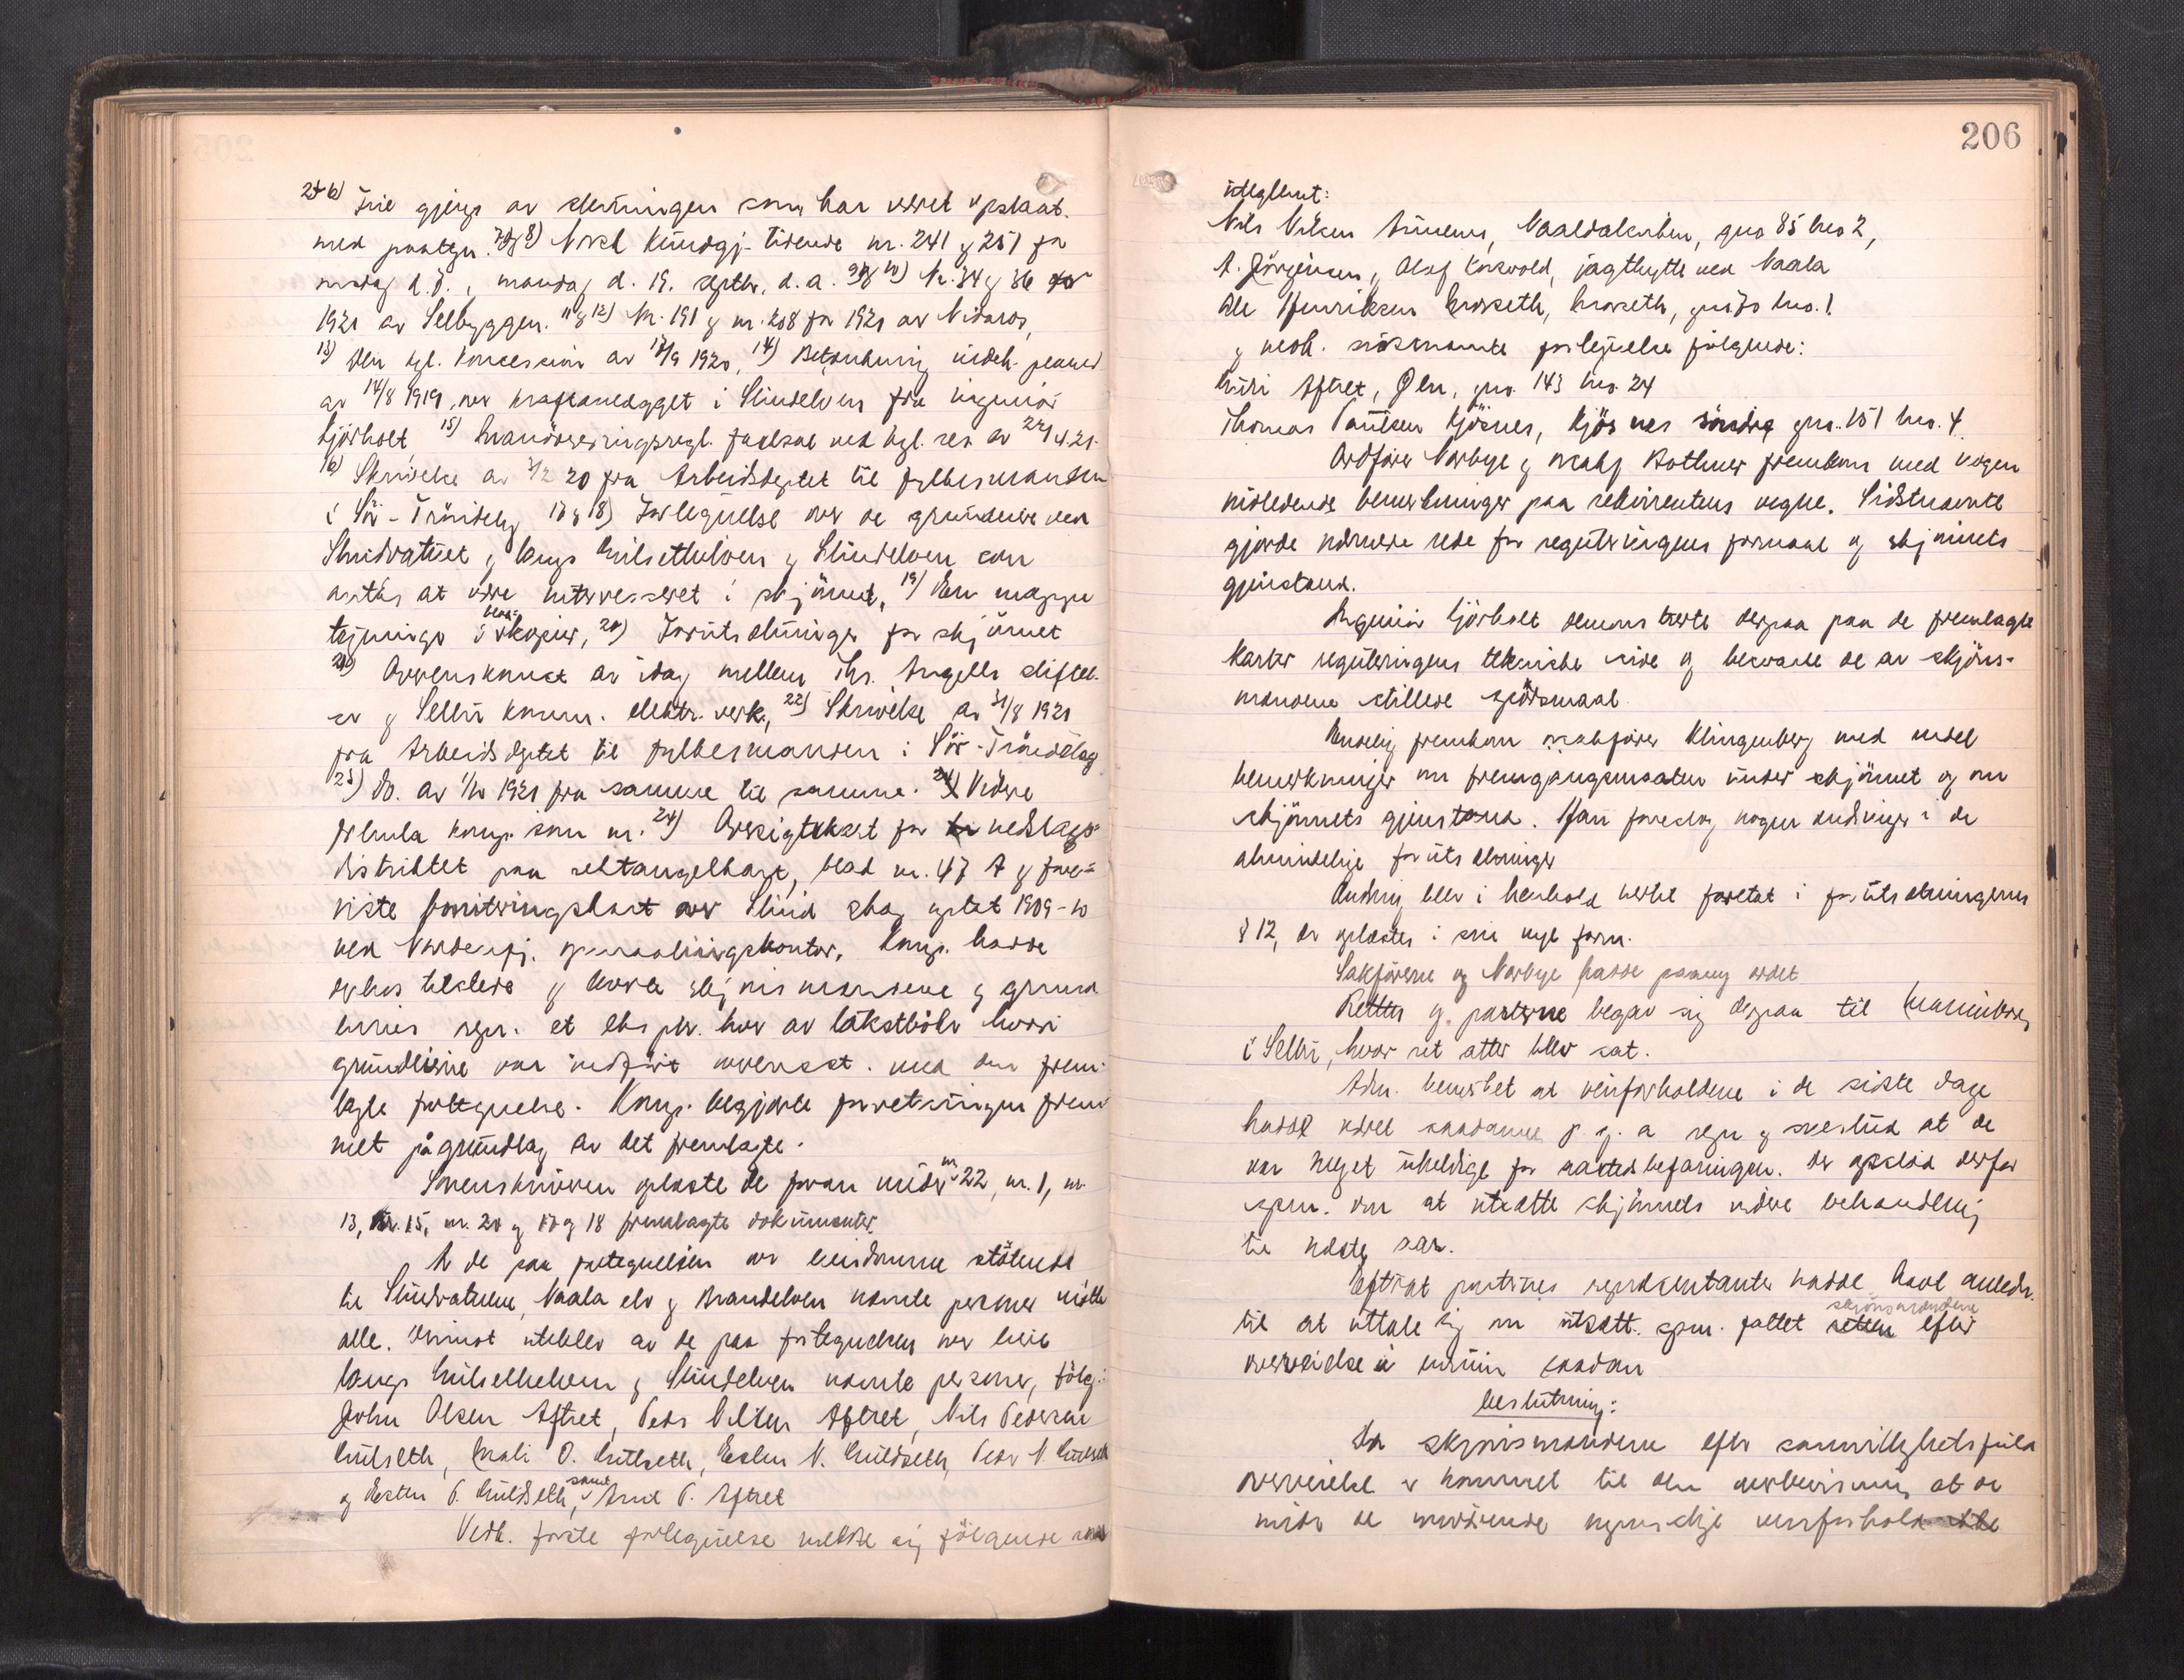 2-6) Fire gjenp. av stevningen som har været opslaat.
med paategn. 7 og 8) Norsk Kundgj. tidende nr. 241 og 251 for
mandag d. 19. septbr. d. a. 9 og 10) Nr. 34 og 36 for
1921 av Selbyggen. 11 og 12) Nr. 191 og nr. 208 for 1921 av Nidaros,
13) Den kgl. koncession av 17/9 1920, 14) Betænkning
av 14/8 1919 over kraftanlægget i Slindelven fra ingeniør
Kjørholt, 15) Manøvreringsregl. fastsat ved kgl. res. av 22/4 21.
16) Skrivelse av 7/2 20 fra Arbeidsdeptet til fylkesmanden
i Sör-Tröndelag 17 og 18) Fortegnelse over de grundeiere ved
Slindvatnet og langs Gulsethelven og Slindelven som
antas at være interesseret i skjönnet, 19) Een mappe
tegninger i blaakopier, 20) Forutsætninger for skjönnet
21) Overenskomst av idag mellem Ths. Angells stiftel-
ser og Selbu komm. elektr. verk, 22) Skrivelse av 31/8 1921
fra Arbeidsdeptet til fylkesmanden i Sör-Tröndelag
23) Do. av 1/10 1921 fra samme til samme. Videre
fremla komp. som nr. 24) Oversigtskart for nedslags-
distriktet paa rektangelkart, blad nr. 47 A og fore-
viste boniteringskart over Slind skog optat 1909-10
ved Nordenfj. opmaalingskontor. Komp. hadde
tilstede og skjønsmændene og grund
eiernes repr. et ekspl. hver av takstbok hvori
grundeierne var indført overensst. med den frem-
lagte fortegnelse. Komp. begjærte forretningen frem
met på grundlag av det fremlagte.
Sorenskriveren oplæste de foran under nr. 22, nr. 1, nr.
13, nr. 15, nr. 20 og 17 og 18 fremlagte dokumenter.
Av de paa fortegnelsen over eiendomme støtende
til Slindvatnene, Naala elv og Brandelven nævnte personer møtte
alle. Derimot uteblev av de paa fortegnelsen over eiere
langs Gulsethelven og Slindelven nævnte personer, følg.:
John Olsen Aftret, Peder Nilsen Aftret, Nils Pedersen
Gulseth, Mali O. Gulseth, Esten N. Guldseth, Peder N. Gulseth
og Esten P. Guldseth, samt Arnt P. Aftret
Vedk. første fortegnelse meldte sig følgende som
uteglemt:
Nils Nilsen Naaldalsenden, gno 85 bno 2,
A. Jörgensen, Olaf Korsvold, jagthytte ved Naala
Ole Henriksen Moseth, Moseth, bno. 1.
og vedk. sidstnævnte fortegnelse følgende:
Guri Aftret, Ølen, gno. 143 bno. 24
Thomas Paulsen Kjösnes, Kjösnes söndre gno. 151 bno. 4.
Ordfører Norbye og Bothner fremkom med nogen
indledende bemerkninger paa rekvirentens vegne. Sidstnævnte
gjorde nærmere rede for reguleringens formaal og skjönnets
gjenstand.
Ingeniør Kjörholt demonstrerte derpaa paa de fremlagte
karter reguleringens tekniske side og besvarte de av skjöns-
mændene stillede spörsmaal.
Endelig fremkom sakfører Klingenberg med endel
bemerkninger om fremgangsmaaten under skjönnet og om
skjönnets gjenstand. Han foreslog nogen ændringer i de
almindelige forutsætninger
Ændring blev i henhold hertil foretat i forutsætningernes
§ 12, der oplæstes i sin nye form.
Sakførerne og Norbye hadde paany ordet
Retten og parterne begav sig derpaa til
i Selbu, hvor ret atter blev sat.
Adm. bemerket at veirforholdene i de siste dage
hadde været saadanne p. g. a. regn og at de
var meget uheldige for aastedsbefaringen. Der opstod derfor
spm. om at utsætte skjönnets videre behandling
til næste aar.
Efterat parternes repræsentanter hadde havt anledn.
til at uttale sig om utsætt. spm. fattet skjønsmændene efter
overveielse i enrum saadan
beslutning:
Da skjønsmændene efter samvittighetsfuld
overveielse er kommet til den overbevisning at de
under de nuværende ugunstige veirforhold ikke